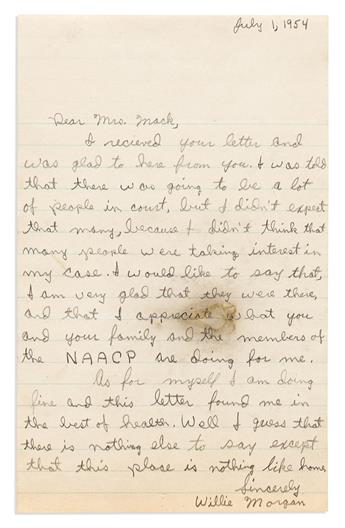 July 1, 1954
Dear Mrs. Mack,
I recieved your letter and
was glad to here from you. I was told
that there was going to be a lot
of people in court, but I didn't expect
that many, because I didn't think that
many people were taking interest in
my case. I would like to say that,
I am very glad that they were there,
and that I appreciate what you
and your family and the members of
the NAACP are doing for me.
As for myself I am doing
fine and this letter found me in
the best of health. Well I guess that
there is nothing else to say except
that this place is nothing like home
Sincerely
Willie Morgan